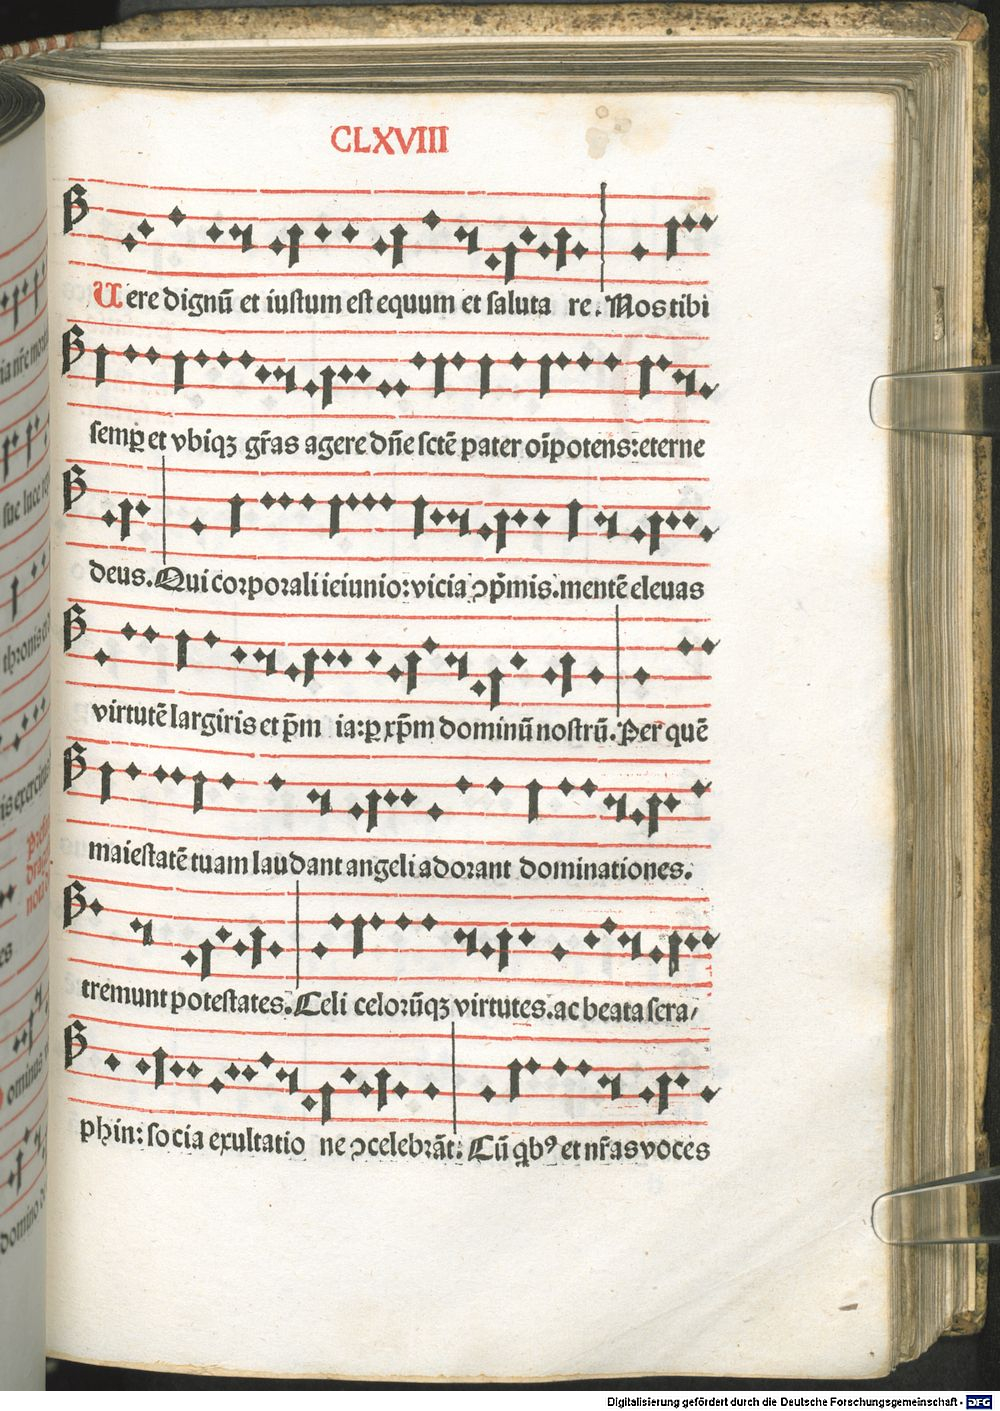 CLXVIII
Uere dignū et iustum est equum et saluta re. Nos tibi
semꝑ et vbiqꝫ gr̄as agere dn̄e sctē pater oī potens: eterne
deus. Qui corporali ieiunio: vicia ↄp̄mis. mentē eleuas
virtutē largiris et p̄m ia: ꝑ xp̄m dominū nostrū. Per quē
maiestatē tuam laudant angeli adorant dominationes.
tremunt potestates. Celi celorūqꝫ virtutes. ac beata sera/
phin: socia exultatio ne ↄcelebrāt: Cū qbꝰ et nr̄as voces
ia nr̄e
thronis
Digitalisierung gefördert durch die Deutsche Forschungsgemeinschaft - DFG